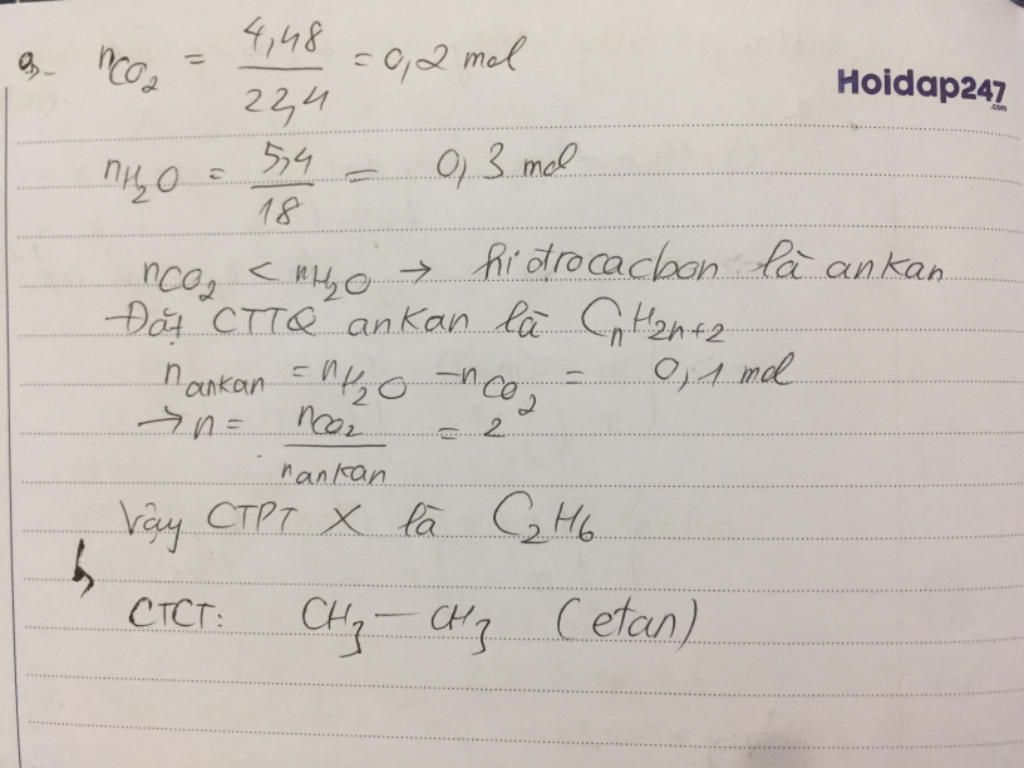 a- nCO2 = 4,48 / 22,4 = 0,2 mol
Hoidap247
.com
nH2O = 5,4 / 18 = 0,3 mol
nCO2 < nH2O → hiđrocacbon là ankan
Đặt CTTQ ankan là CnH2n+2
nankan = nH2O - nCO2 = 0,1 mol
→ n = nCO2 / nankan = 2
Vậy CTPT X là C2H6
b,
CTCT: CH3 — CH3 (etan)